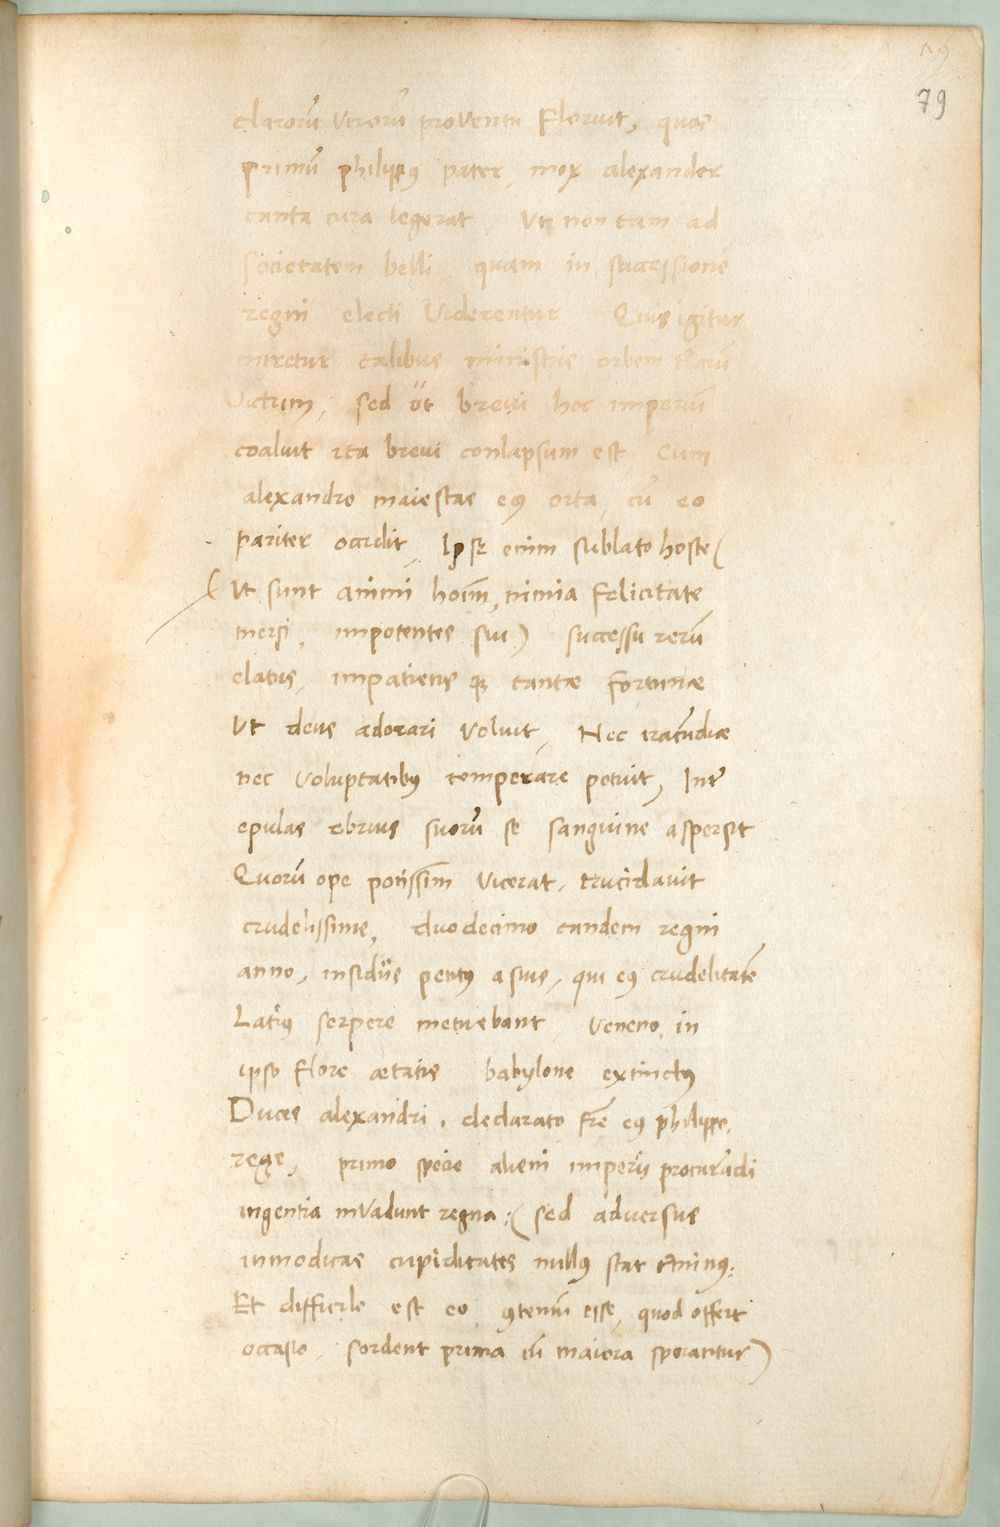 79
clarorū Virorū proVentu Floruit, quos
primū philippꝰ pater, mox alexander
tanta cura legerat, Ut non tam ad
societatem belli, quam in successionē
regni electi Viderentur Quis igitur
miretur talibus ministris orbem terrarū
Victum, sed üt breui hoc imperiū
coaluit ita breui conlapsum est Cum
alexandro maiestas eꝰ orta, cū eo
pariter occidit, Ipse enim sublato hoste (
Ut sunt animi homīm, nimia Felicitate
mersi, impotentes sui) successu rerū
elatus, impatiens qꝫ tantæ Fortunæ
Ut deus adorari Voluit, Nec iracūdiæ
nec Voluptatibꝰ temperare potuit, Int̄
epulas ebrius suorū se sanguine aspersit
Quorū ope potissīm Vicerat, trucidauit
crudelissime, duodecimo tandem regni
anno, insidiis petitꝰ a suis, qui eꝰ crudelitatē
Latiꝰ serpere metuebant, Veneno in
ipso Flore ætatis babylone extinctꝰ
Duces alexandri, declarato frē eꝰ philippo,
rege, primo specie alieni imperii procurādi
ingentia inVadunt regna: (sed adversus
inmodicas cupiditates nullꝰ stat terminꝰ:
Et difficile est eo ꝯtentū esse, quod offert
occasio, sordent prima cū maiora sperantur)